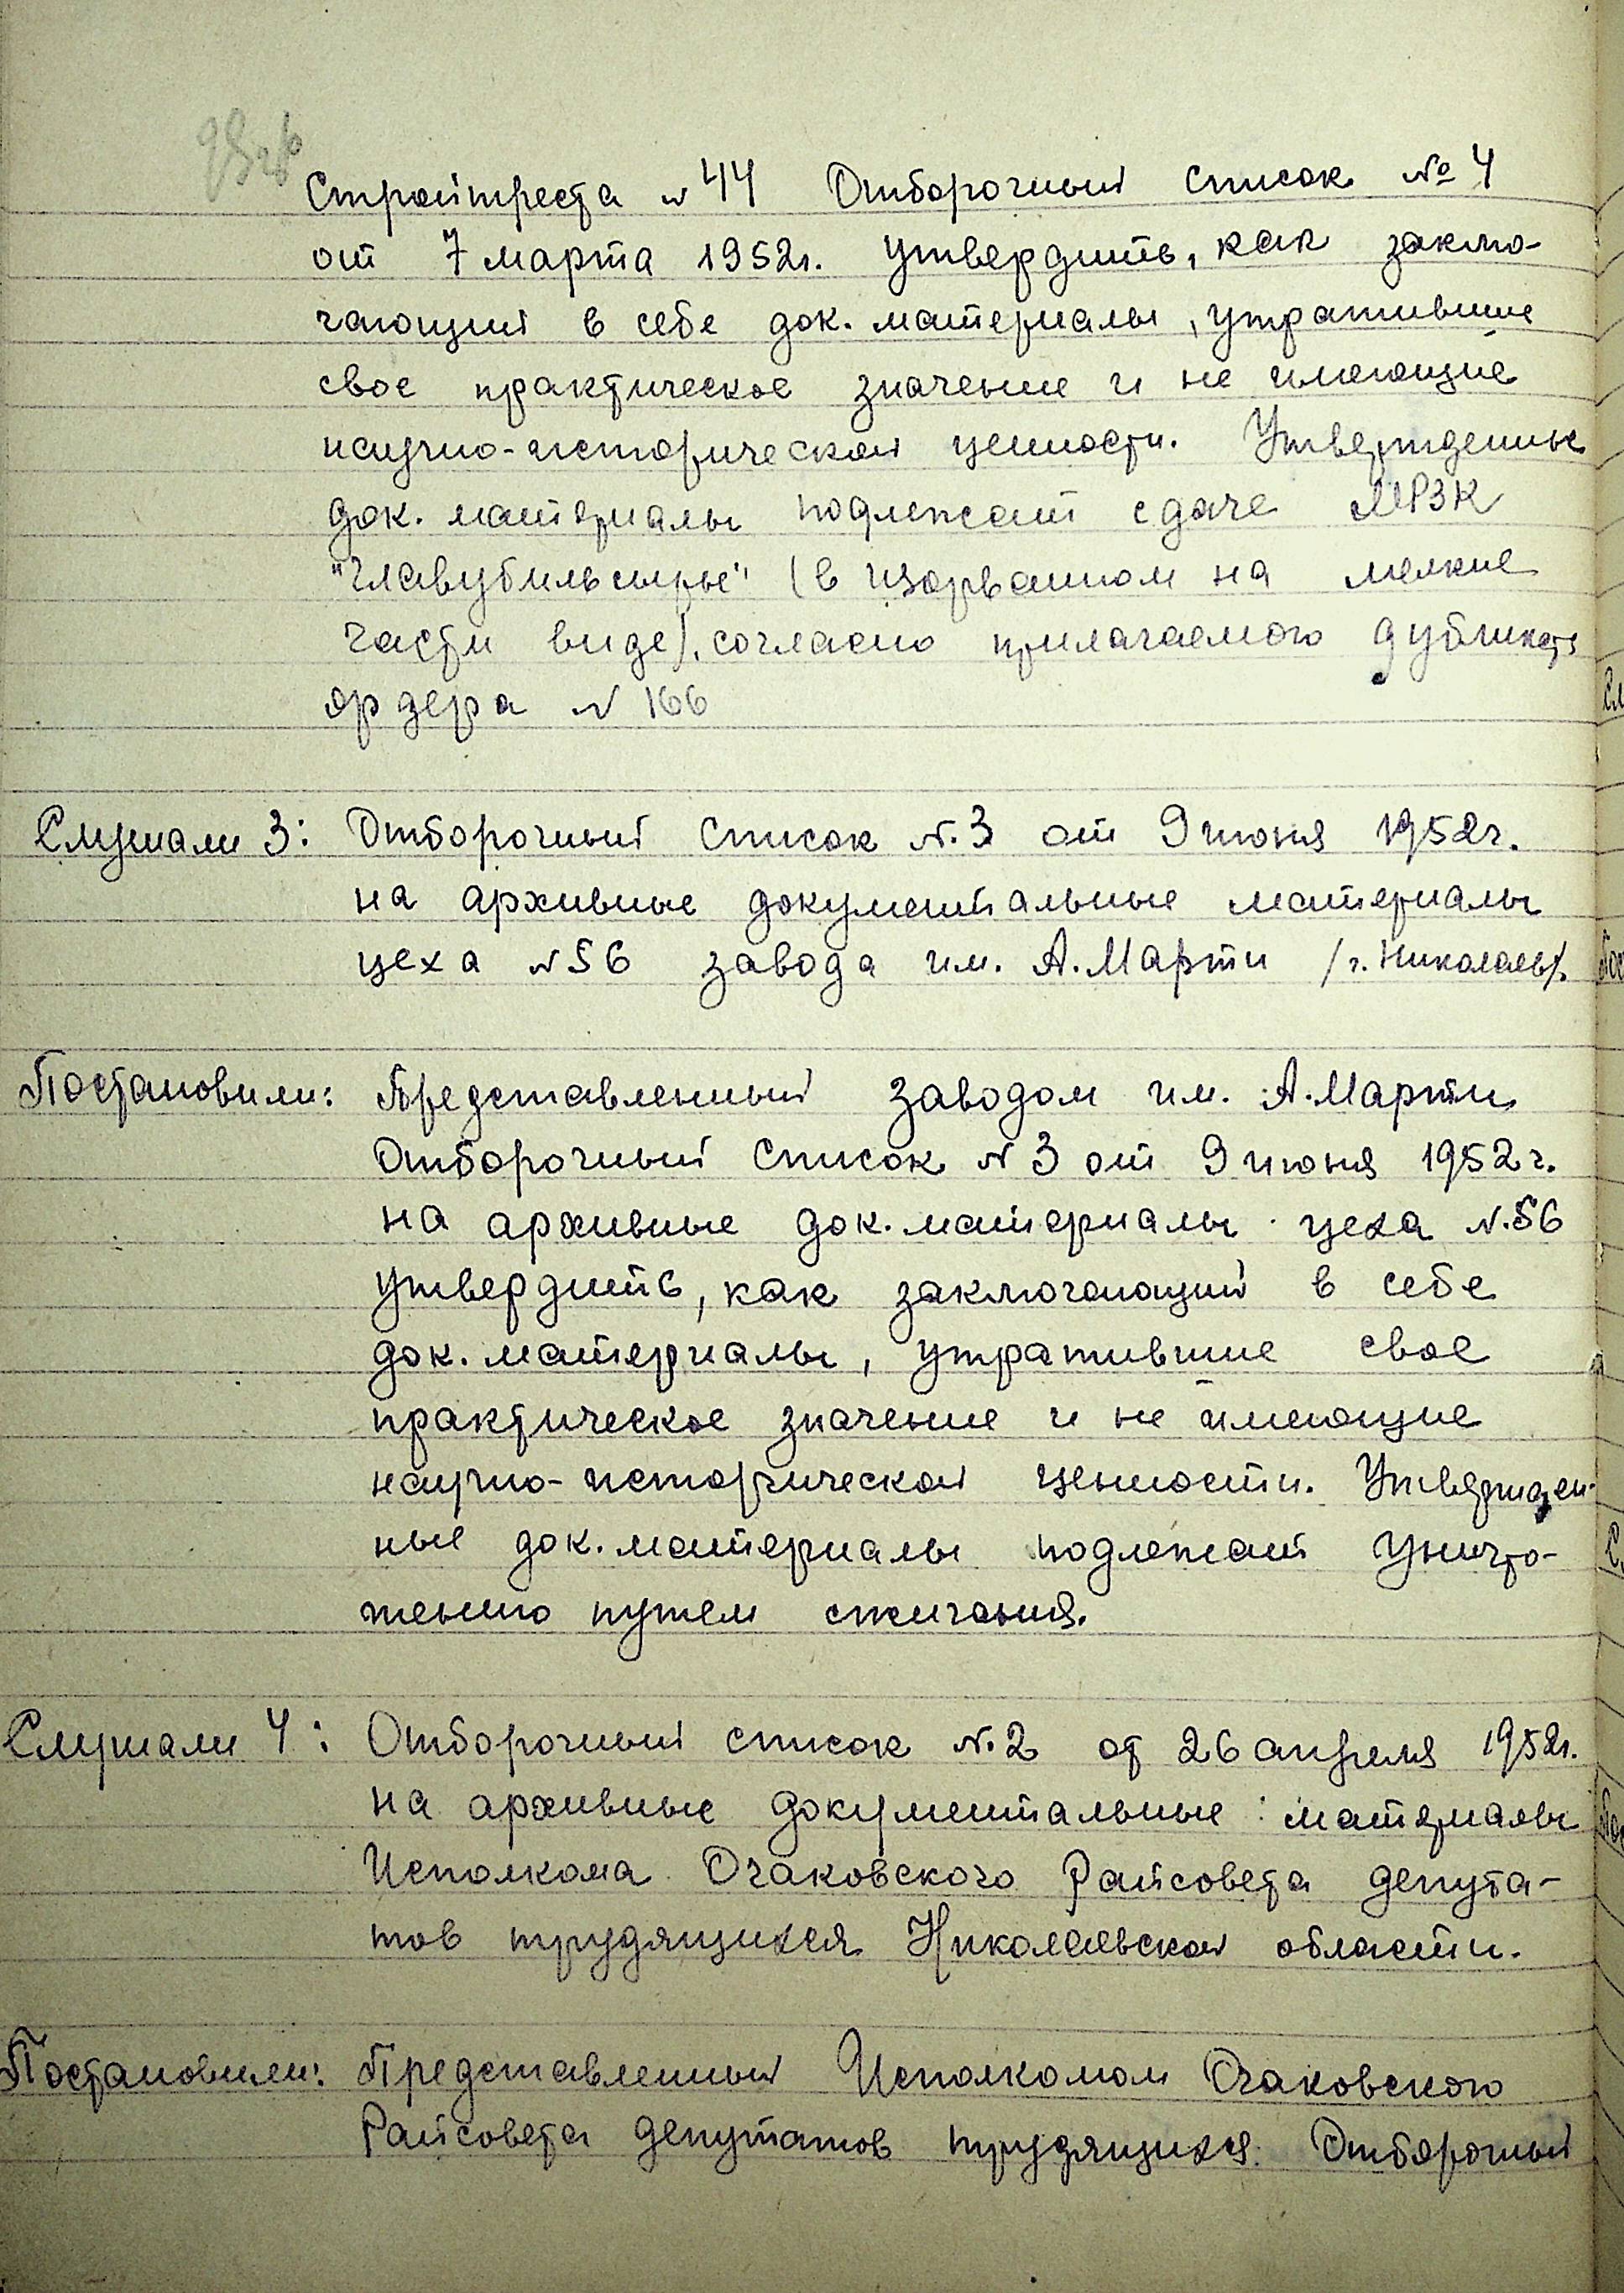 Стройтреста № 44 Отборочный список № 4
от 7 марта 1952г. утвердить, как заклю-
чающий в себе док. материалы, утратившие
свое практическое значение и не имеющие
научно-исторической ценности. Утвержденные
док. материалы подлежат сдаче МРЗК
"Главутильсырье" (в изорванном на мелкие
части виде), согласно прилагаемого дубликата
ордера № 166
Слушали 3: Отборочный список №.3 от 9 июня 1952г.
на архивные документальные материалы
цеха №56 завода им. А.Марти /г. Николаев/.
Постановили: Представленный заводом им. А.Марти
Отборочный список № 3 от 9 июня 1952г.
на архивные док. материалы цеха №.56
утвердить, как заключающий в себе
док. материалы, утратившие свое
практическое значение и не имеющие
научно-исторической ценности. Утвержден-
ные док. материалы подлежат уничто-
жению путем сжигания.
Слушали 4: Отборочный список №.2 от 26 апреля 1952г.
на архивные документальные материалы
Исполкома Очаковского Райсовета депута-
тов трудящихся Николаевской области.
Постановили: Представленный Исполкомом Очаковского
Райсовета депутатов трудящихся Отборочный